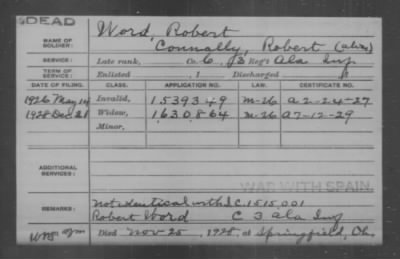 DEAD
Word, Robert
NAME OF SOLDIER: Connally, Robert (alias)
SERVICE: Late rank, Co. G, 3 Reg't Ala Inf
TERM OF SERVICE: Enlisted , 1 Discharged , 1
DATE OF FILING. CLASS. APPLICATION NO. LAW. CERTIFICATE NO.
1926 May 14 Invalid, 1539349 M-26 A 2-24-27
1928 Dec 21 Widow, 1630864 M-26 A 7-12-29
Minor,
ADDITIONAL SERVICES:
WAR WITH SPAIN
REMARKS: Not identical with I.C. 1515,001
Robert Word C 3 Ala Inf
Died Nov 25, 1928, at Springfield, Oh.